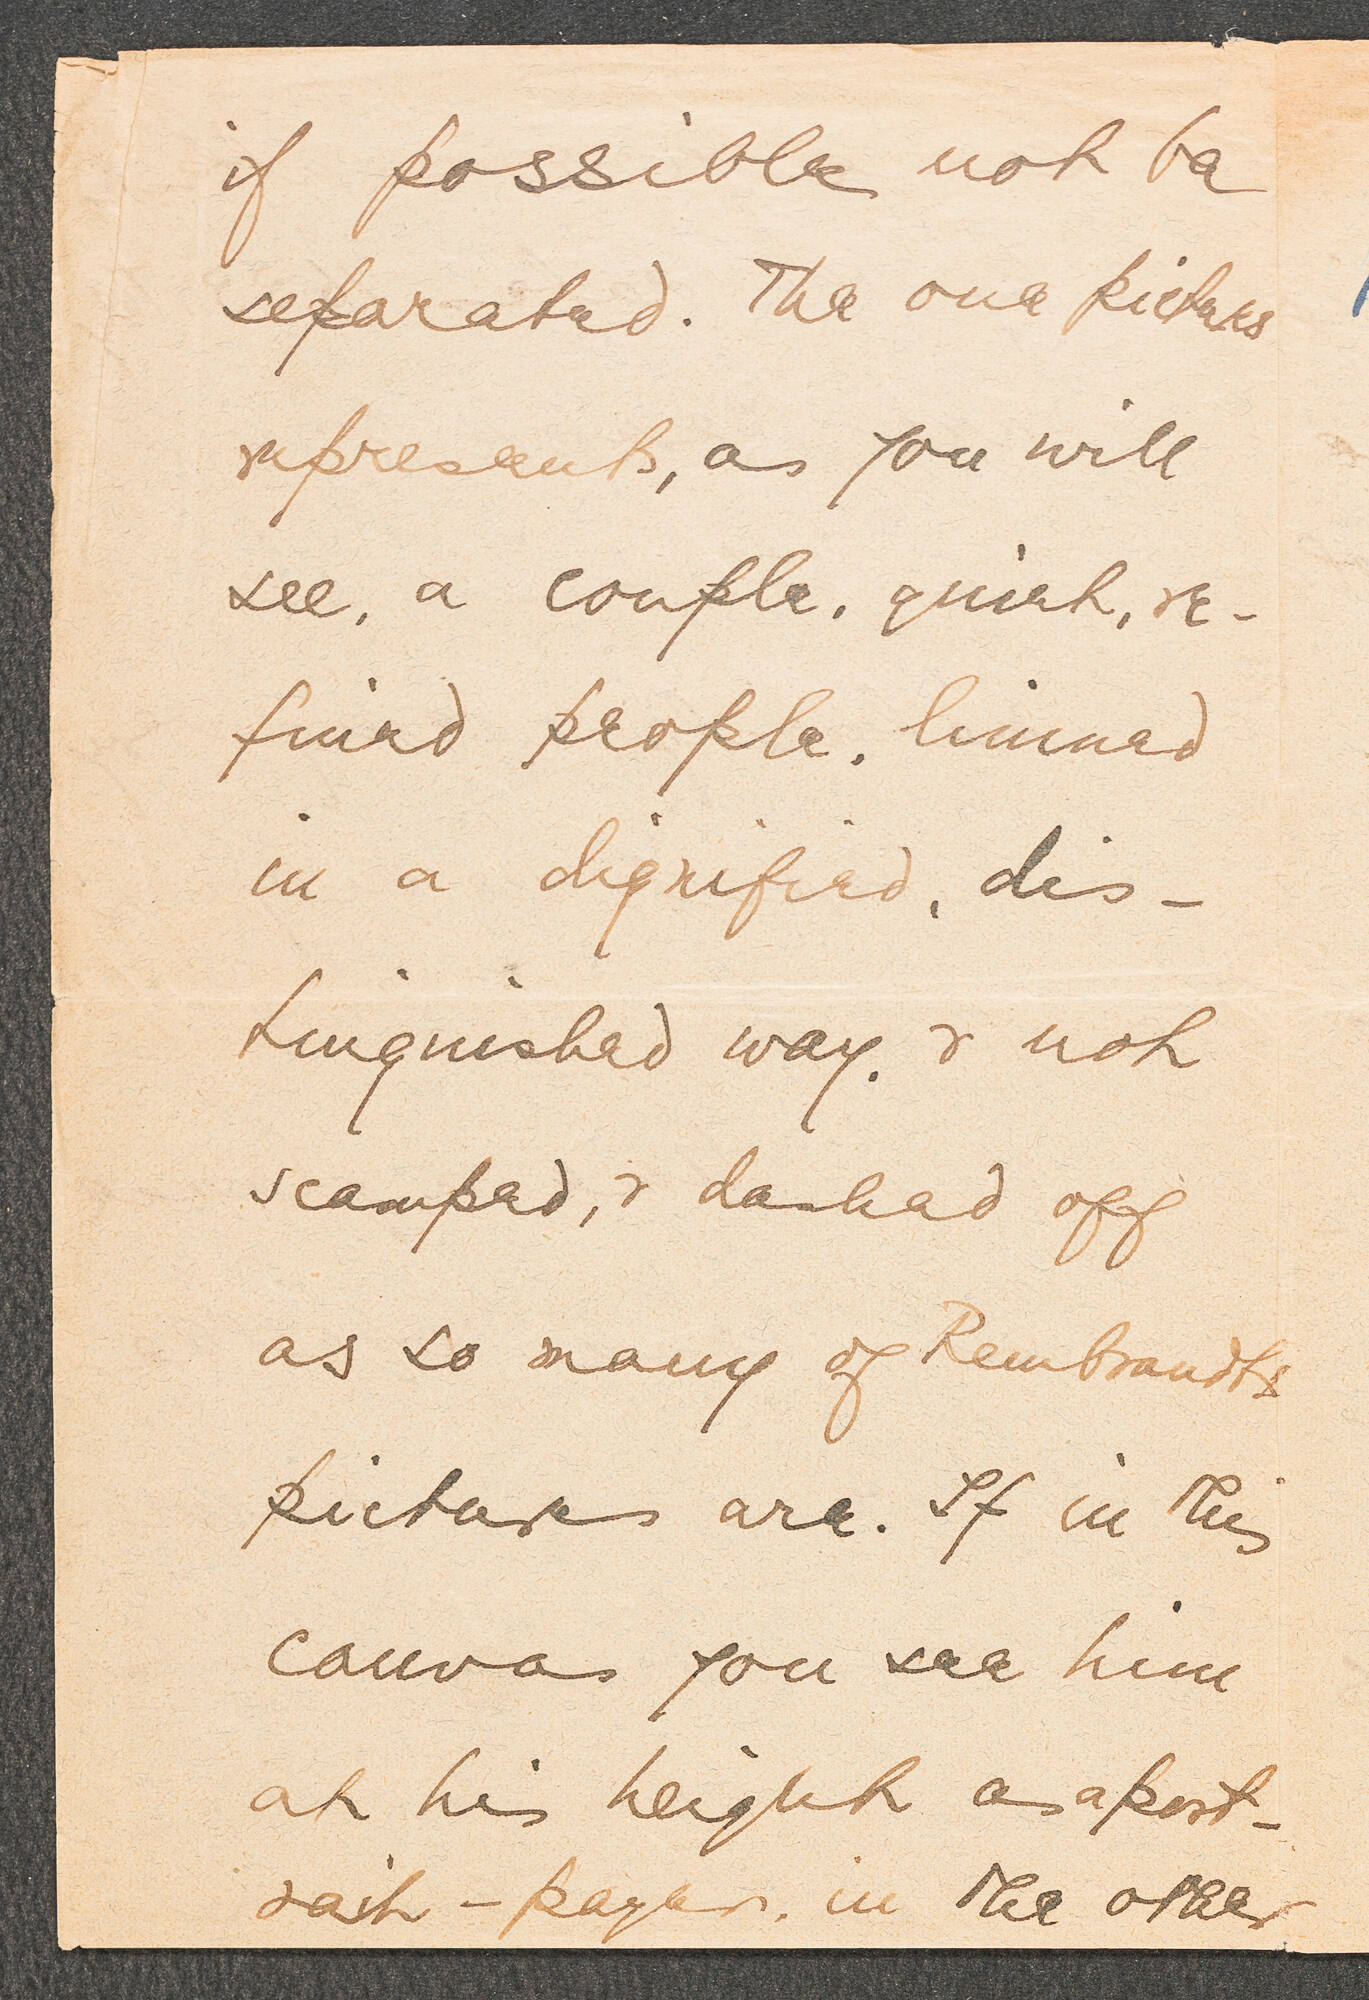 if possible not be
separated. The one picture
represents, as you will
see, a couple, quiet, re-
fined people, limned
in a dignified, dis-
tinguished way, & not
scamped, & dashed off
as so many of Rembrandts
pictures are. If in this
canvas you see him
at his height as a port-
rait - payer, in the other